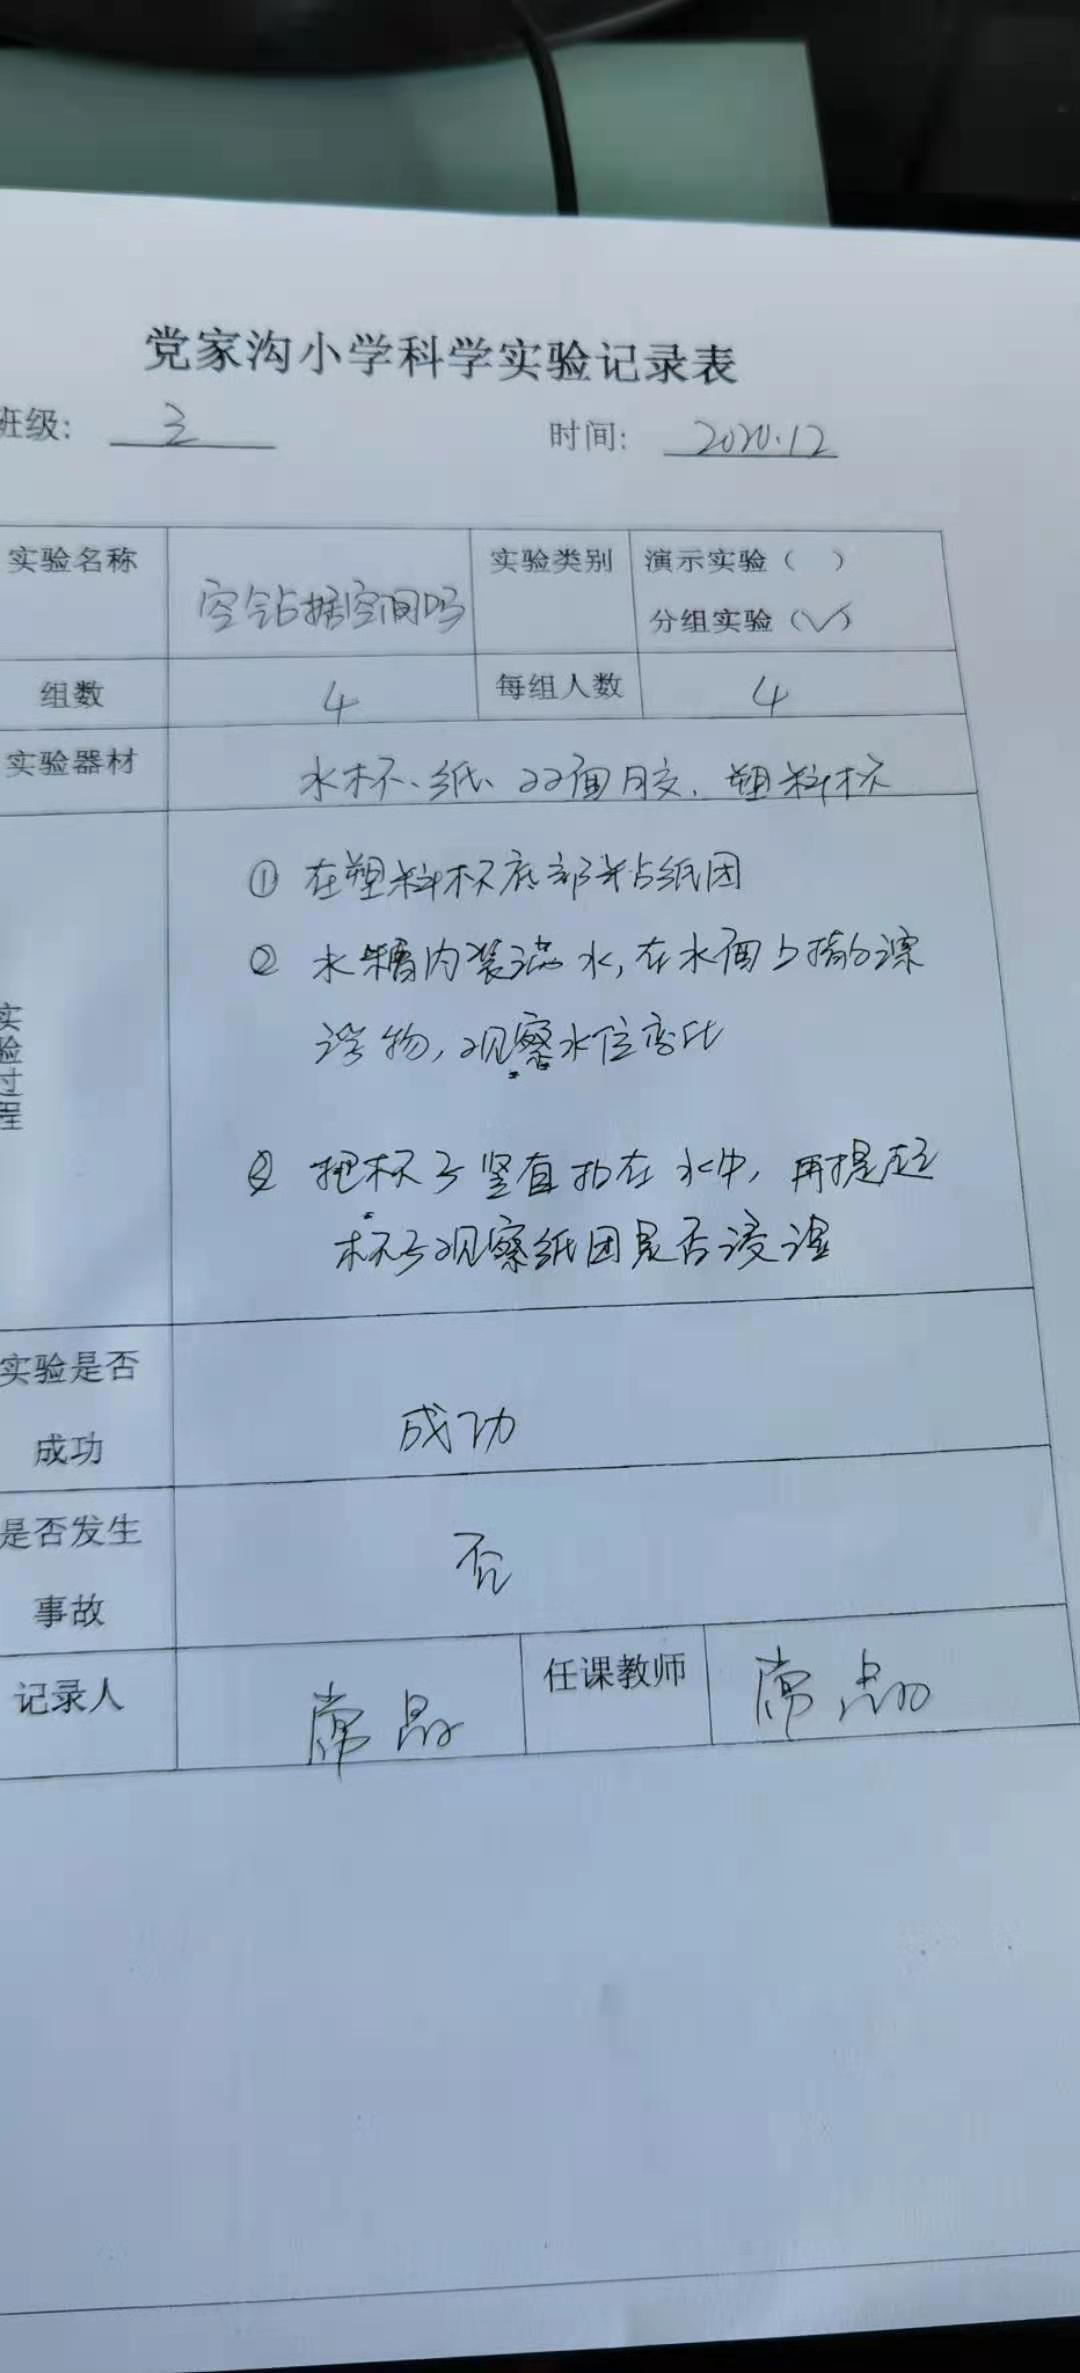 党家沟小学科学实验记录表
班级: 三 时间: 2020.12
实验名称 空气占据空间吗 实验类别 演示实验（ ）
分组实验（✓）
组数 4 每组人数 4
实验器材 水杯、纸、双面胶、塑料杯
实验过程
① 在塑料杯底部粘纸团
② 水槽内装满水,在水面上
物,观察水位变化
③ 把杯子竖直扣在水中,再提起
杯子观察纸团是否浸湿
实验是否
成功 成功
是否发生
事故 否
记录人 席晶 任课教师 席晶